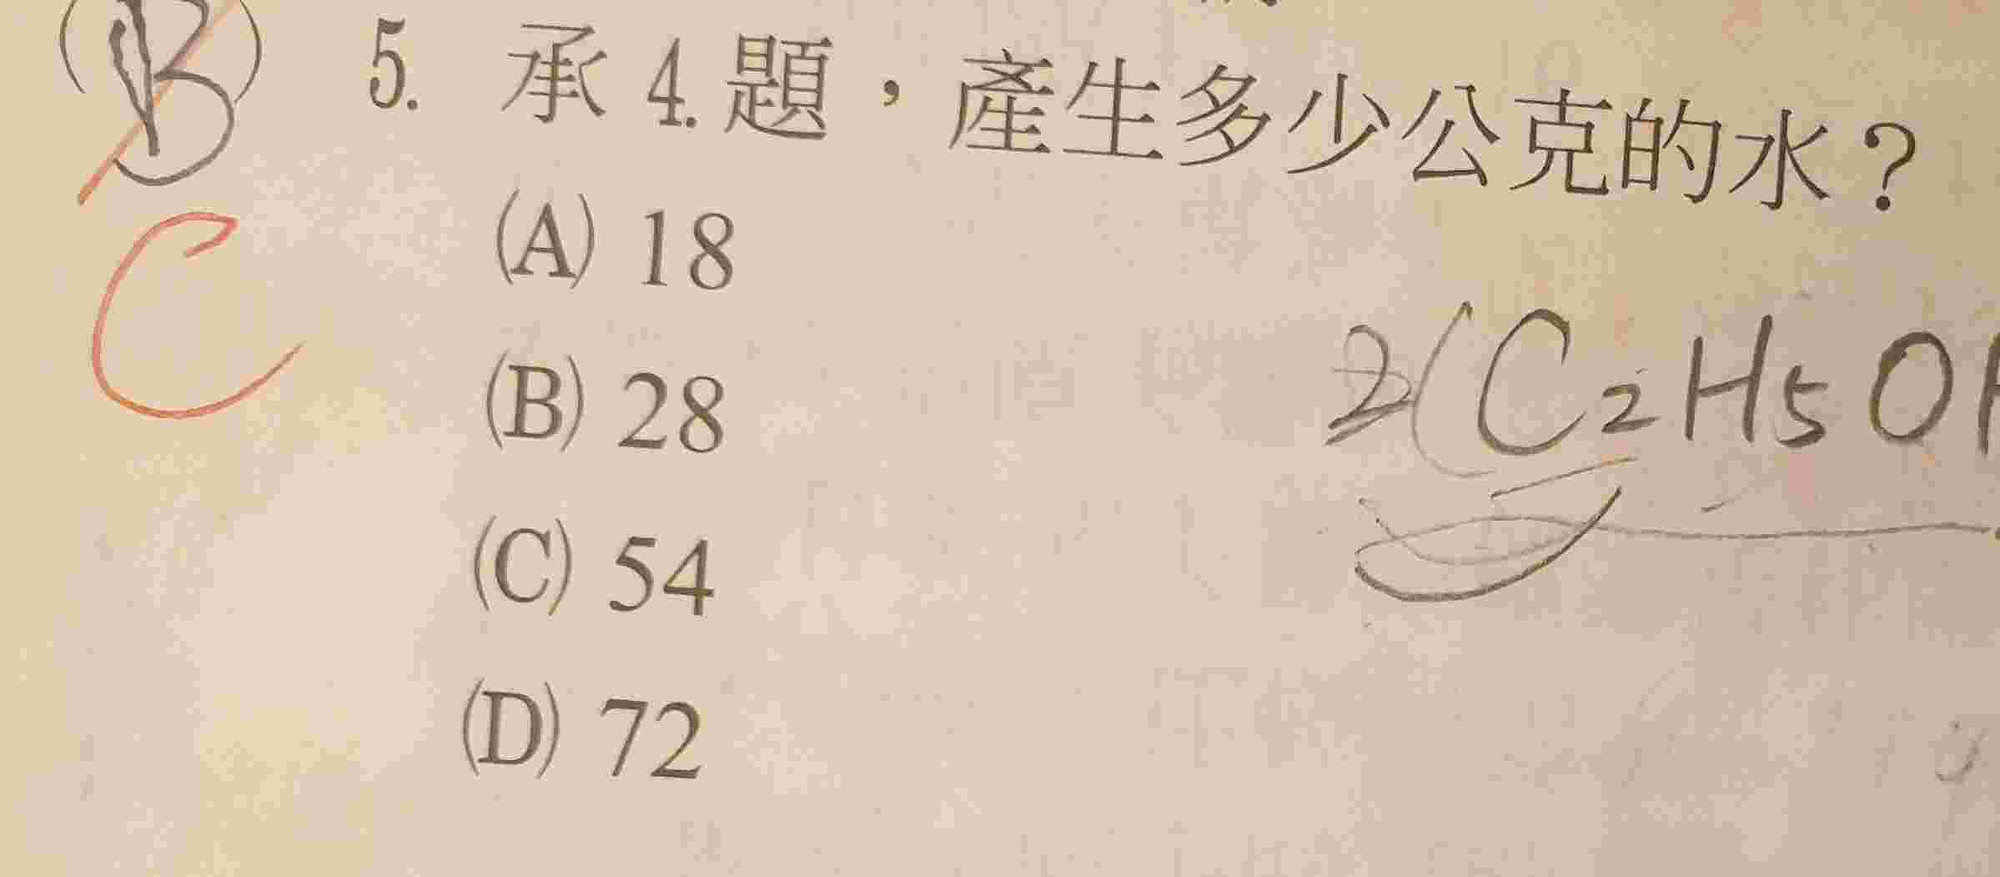 (B) 5. 承 4. 題，產生多少公克的水？
C
(A) 18
(B) 28
(C) 54
(D) 72
2(C2H5OH